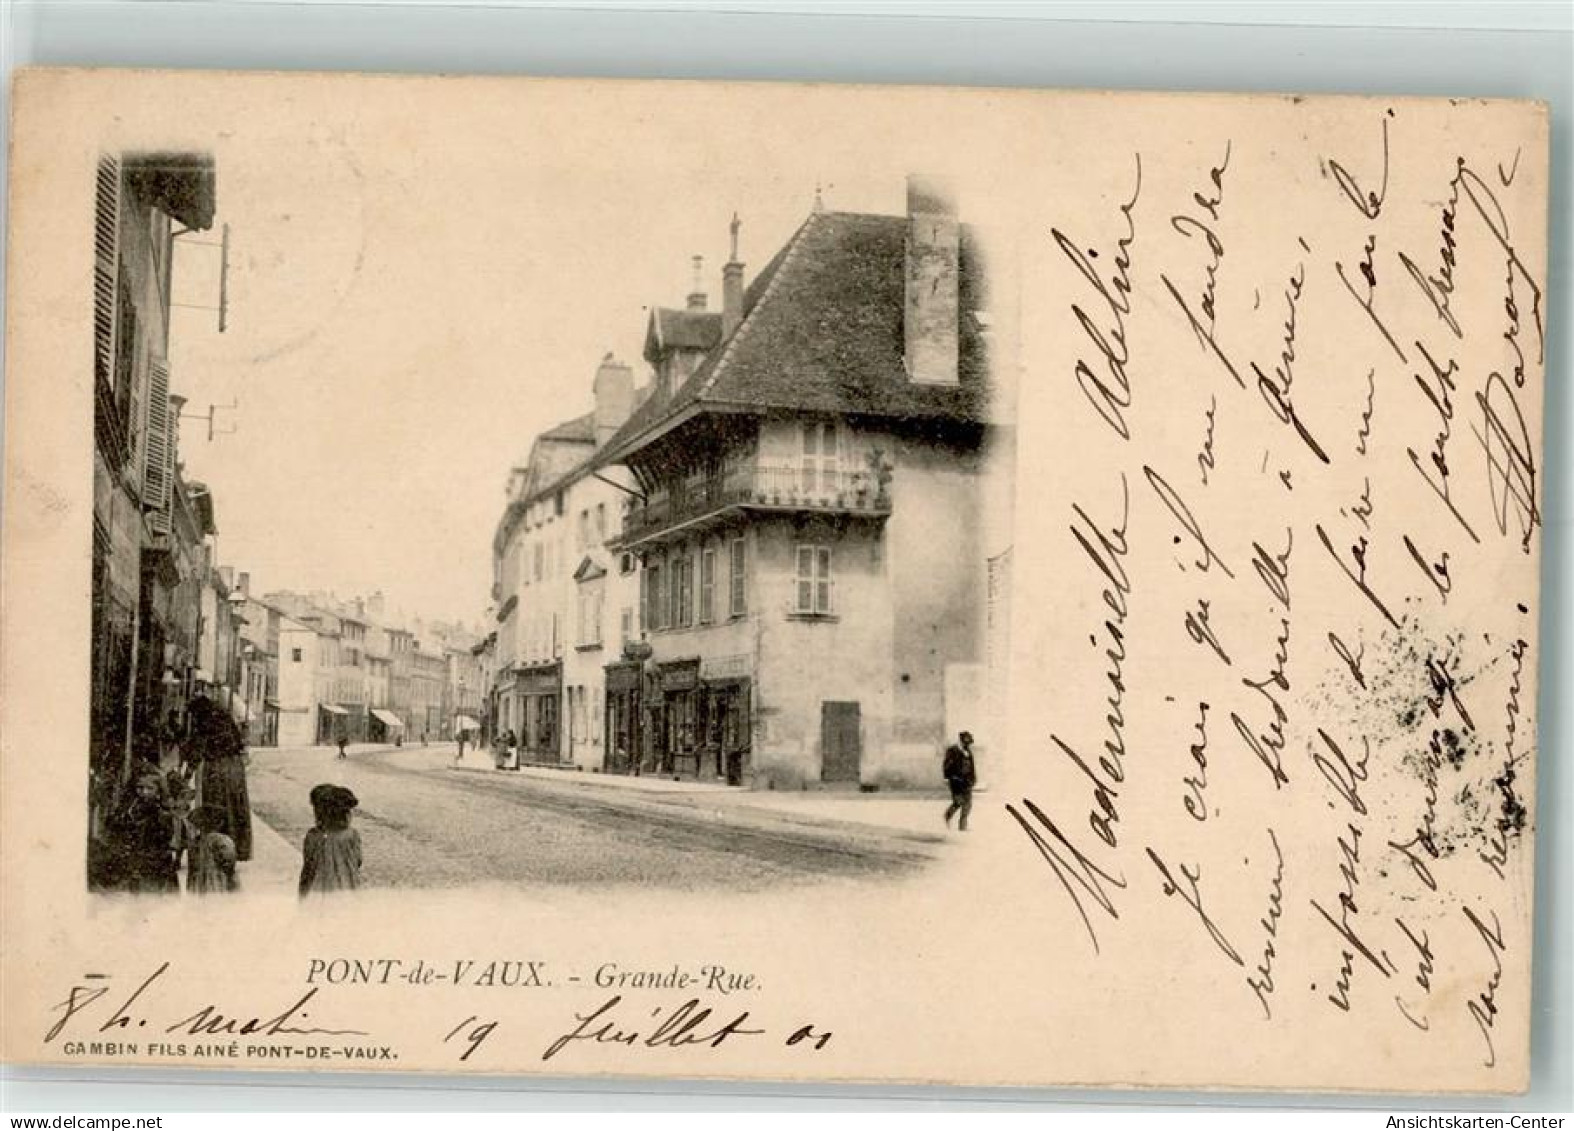 PONT-de-VAUX. - Grande-Rue.
8 h. matin 19 Juillet 01
GAMBIN FILS AINÉ PONT-DE-VAUX.
Mademoiselle Adeline
Je crois qu'il me faudra
revenir bredouille à genève,
impossible de faire un pas le
c'est dommage les forêts
sont résonnées.
www.delcampe.net
Ansichtskarten-Center